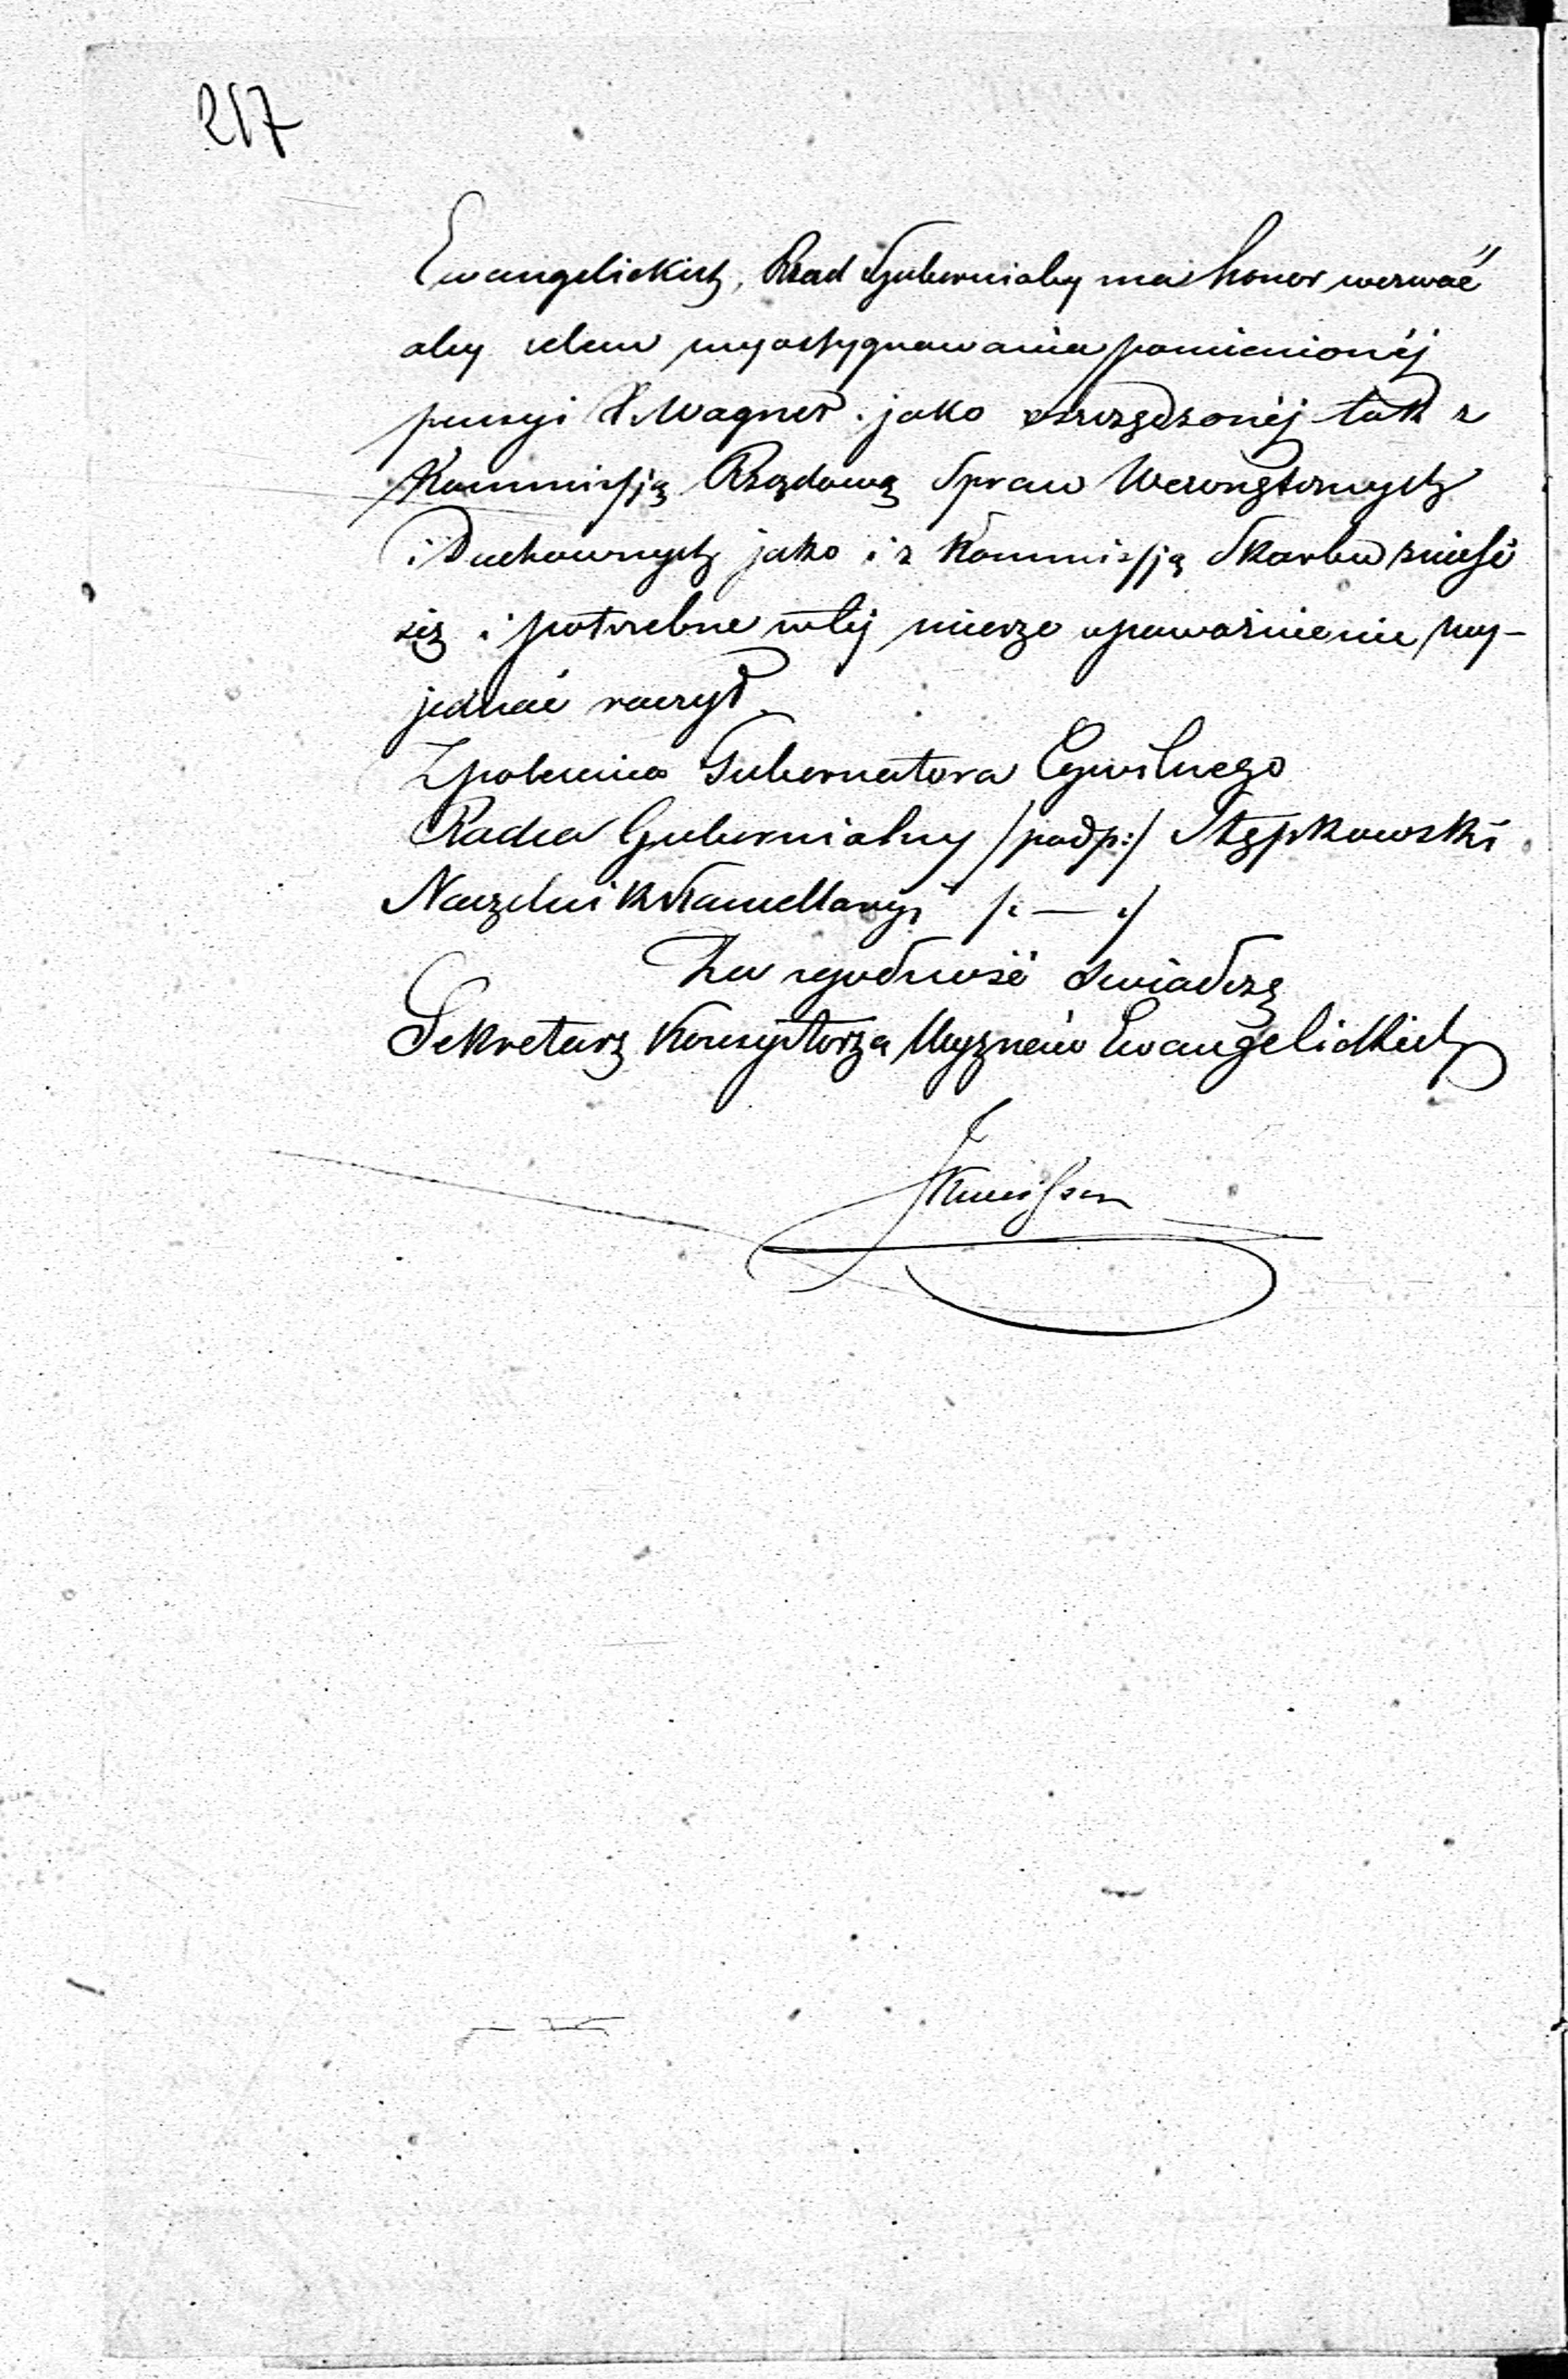 217
Ewangelickich, Rząd Gubernialny ma honor wezwać
aby celem wyassygnowania pomienionéj
pensyi X. Wagner. jako oszczędzonéj tak z
Kommissją Rządową Spraw Wewnętrznych
i Duchownych jako i z Kommissją Skarbu znieść
się i potrzebne w téj mierze upoważnienie wy-
jednać raczył.
Z polecenia Gubernatora Cywilnego
Radca Gubernialny /podp:/ Stępkowski
Naczelnik Kancellaryi /: — :/
Za zgodność świadczę
Sekretarz Konsystorza Wyznań Ewangelickich